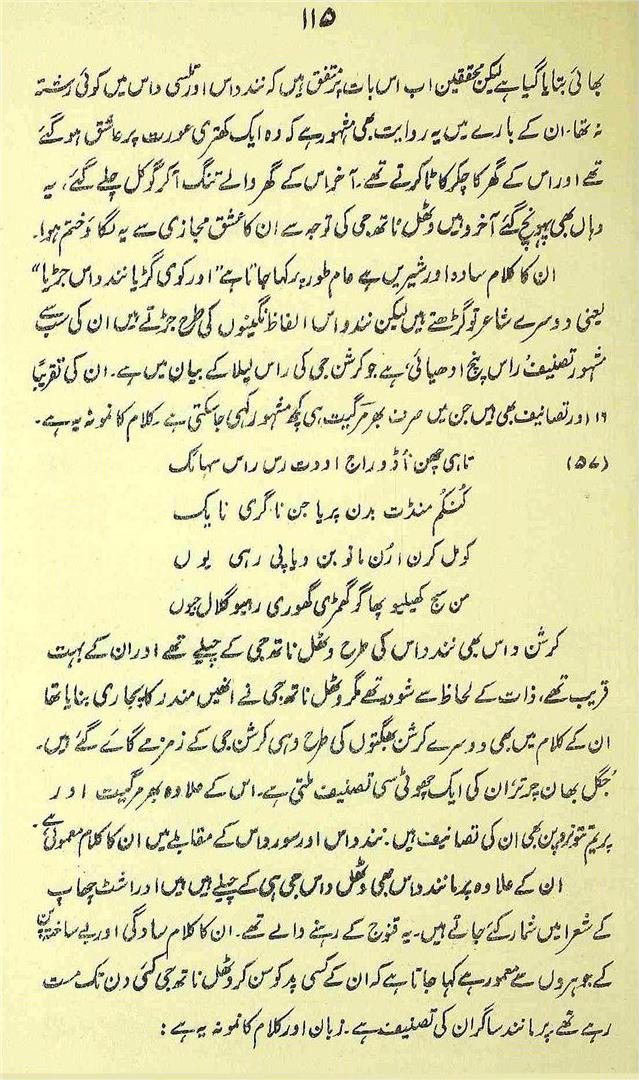 ۱۱۵
بھائی بتایا گیا ہے لیکن محققین اب اس بات پر متفق ہیں کہ نند داس اور تلسی داس میں کوئی رشتہ
نہ تھا۔ ان کے بارے میں یہ روایت بھی مشہور ہے کہ وہ ایک کھتری عورت پر عاشق ہو گئے
تھے اور اس کے گھر کا چکر کاٹا کرتے تھے۔ آخر اس کے گھر والے تنگ آکر گوکل چلے گئے، یہ
وہاں بھی پہونچ گئے آخر وہیں وٹھل ناتھ جی کی توجہ سے ان کا عشق مجازی سے یہ لگاؤ ختم ہوا۔
ان کا کلام سادہ اور شیریں ہے عام طور پر کہا جاتا ہے "اور کوی گڑیا نند داس جڑیا"
یعنی دوسرے شاعر تو گڑھتے ہیں لیکن نند داس الفاظ نگینوں کی طرح جڑتے ہیں ان کی سب سے
مشہور تصنیف راس پنچ ادھیائی ہے جو کرشن جی کی راس لیلا کے بیان میں ہے۔ ان کی تقریباً
۱۶ اور تصانیف بھی ہیں جن میں صرف بھرمر گیت ہی کچھ مشہور کہی جا سکتی ہے۔ کلام کا نمونہ یہ ہے۔
(۵۷) تاہی چھن اُڈوراج اودت رس راس سہائک
کُنکُم منڈت بدن پریا جن ناگری نایک
کومل کرن ارُن مانو بن ویاپی رہی یوں
من سج کھیلیو پھاگو گھمڑی گھوری رہیو گلال جیوں
کرشن داس بھی نند داس کی طرح وٹھل ناتھ جی کے چیلے تھے اور ان کے بہت
قریب تھے، ذات کے لحاظ سے شودر تھے مگر وٹھل ناتھ جی نے انھیں مندر کا پجاری بنایا تھا
ان کے کلام میں بھی دوسرے کرشن بھگتوں کی طرح وہی کرشن جی کے زمزمے گائے گئے ہیں۔
جُگل بھان چرتر ان کی ایک چھوٹی سی تصنیف ملتی ہے۔ اس کے علاوہ بھرمر گیت اور
پریم تتو نروپن بھی ان کی تصانیف ہیں۔ نند داس اور سور داس کے مقابلے میں ان کا کلام معمولی ہے۔
ان کے علاوہ پرمانند داس بھی وٹھل داس جی ہی کے چیلے ہیں ہیں اور اشٹ چھاپ
کے شعرا میں شمار کئے جاتے ہیں۔ یہ قنوج کے رہنے والے تھے۔ ان کا کلام سادگی اور بے ساختہ پن
کے جوہروں سے معمور ہے کہا جاتا ہے کہ ان کے کسی پد کو سن کر وٹھل ناتھ جی کئی دن تک مست
رہے تھے پرمانند ساگر ان کی تصنیف ہے۔ زبان اور کلام کا نمونہ یہ ہے: